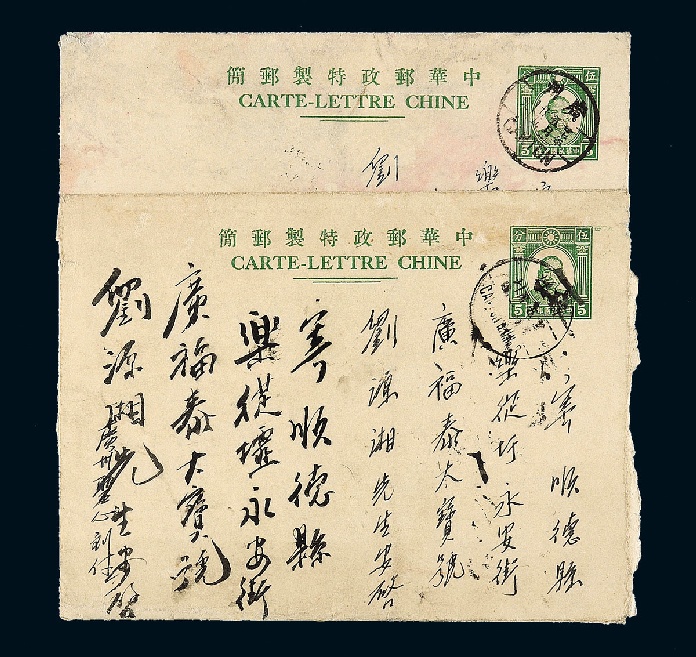 中華郵政特製郵簡
CARTE-LETTRE CHINE
伍
5
樂
劉
中華郵政特製郵簡
CARTE-LETTRE CHINE
伍 分
5 5
寄 順德縣
樂從圩永安街
廣福泰大寶號
劉源湘先生安啓
寄順德縣
樂從墟永安街
廣福泰大寶號
劉源湘先生安啓
廣州聖心劉